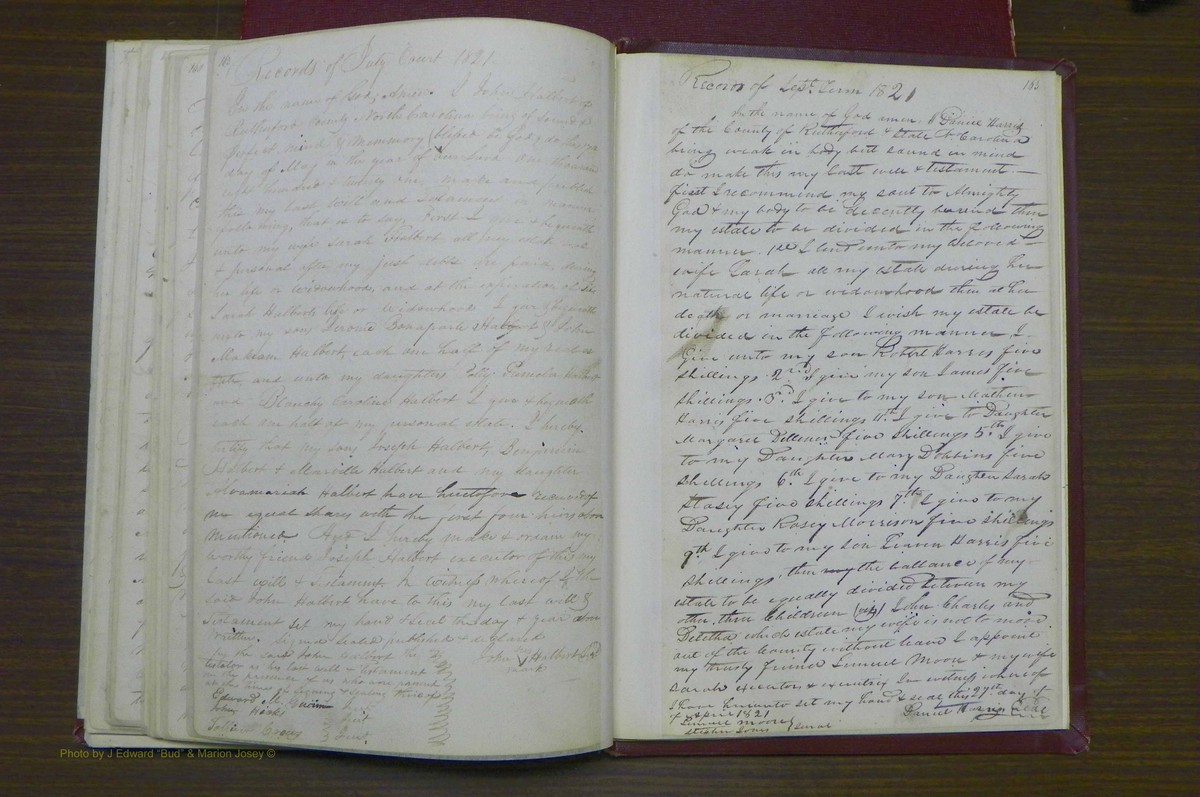 Records of July Court 1821
In the name of God, Amen. I John Halbert of
Rutherford County North Carolina being of sound &
Perfect mind & Memmory (blessed be God) do this
day of May in the year of our Lord One thousand
eight hundred & twenty one, make and publish
this my last Will and Testament in manner
following, that is to say, First I give & bequeath
unto my wife Sarah Halbert all my estate real
& personal after my just debts are paid, during
her life or widowhood, and at the expiration of
Sarah Halberts life or widowhood I give & bequeath
unto my sons Jerome Bonaparte Halbert & John
Halbert, each one half of my real es
tate, and unto my daughters Pamela Halbert
and Blanchy Caroline Halbert I give & bequeath
each one half of my personal estate. I hereby
certify that my sons Joseph Halbert, Benjamin
Halbert & Halbert and my daughter
Halbert have heretofore received
no equal shares with the first four heirs above
mentioned And I hereby make & ordain my
worthy friend Joseph Halbert executor of this my
last will & Testament In witness whereof I the
said John Halbert have to this my last will &
Testament set my hand & seal the day & year above
written. Signed sealed published & declared
by the said John Halbert the
testator as his last will & testament
in the presence of us who were present
at the signing & sealing thereof
John his mark Halbert
Edward
John
Record of Sept. Term 1821
183
In the name of God amen. I Daniel Harris
of the County of Rutherford & State N Carolina
being weak in body but sound in mind
do make this my last will & testament.—
first I recommend my soul to Almighty
God & my body to be decently buried then
my estate to be divided in the following
manner. 1st I lend unto my beloved
wife Sarah all my estate during her
natural life or widowhood then at her
death or marriage I wish my estate be
divided in the following manner I
Give unto my son Robert Harris five
shillings. 2nd I give my son James five
shillings. 3d. I give to my son Mathew
Harris five shillings 4th I give to Daughter
Margaret five shillings 5th I give
to my Daughter Mary Dobbins five
shillings 6th. I give to my Daughter Sarah
Stasey five shillings 7th I give to my
Daughter Rosey Morrison five shillings
9th I give to my son Harris five
shillings, then my the ballance of my
estate to be equally divided between my
other three Children (viz) John Charles and
which estate my wife is not to move
out of the County without leave I appoint
my trusty friend Lemuel Moore & my wife
Sarah executors & executrix In witness whereof
I have hereunto set my hand & seal this 27th day of
of April 1821
Daniel Harris seal
Lemuel Moore
Jurat
Photo by J Edward "Bud" & Marion Josey ©